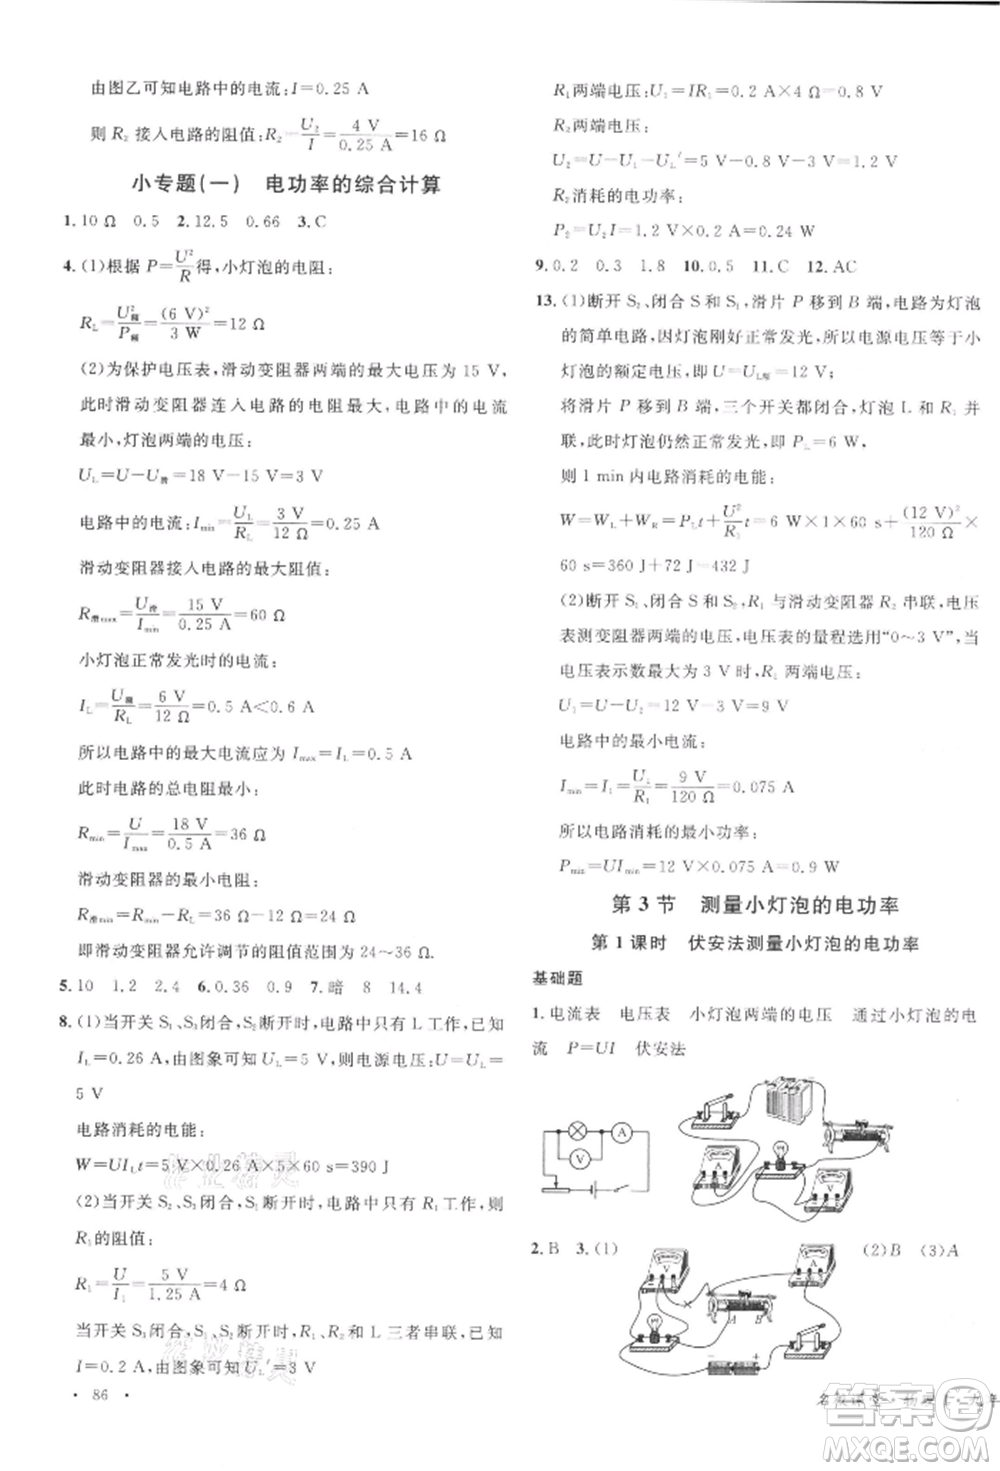 由图乙可知电路中的电流:I=0.25 A
则 R₂ 接入电路的阻值:R₂=U₂/I=4 V/0.25 A=16 Ω
小专题(一) 电功率的综合计算
1.10 Ω 0.5 2.12.5 0.66 3.C
4.(1)根据 P=U²/R得,小灯泡的电阻:
R_L=U²额/P额=(6 V)²/3 W=12 Ω
(2)为保护电压表,滑动变阻器两端的最大电压为 15 V,
此时滑动变阻器连入电路的电阻最大,电路中的电流
最小,灯泡两端的电压:
U_L=U-U滑=18 V-15 V=3 V
电路中的电流:I_min=U_L/R_L=3 V/12 Ω=0.25 A
滑动变阻器接入电路的最大阻值:
R滑max=U滑/I_min=15 V/0.25 A=60 Ω
小灯泡正常发光时的电流:
I_L=U额/R_L=6 V/12 Ω=0.5 A<0.6 A
所以电路中的最大电流应为 I_max=I_L=0.5 A
此时电路的总电阻最小:
R_min=U/I_max=18 V/0.5 A=36 Ω
滑动变阻器的最小电阻:
R滑min=R_min-R_L=36 Ω-12 Ω=24 Ω
即滑动变阻器允许调节的阻值范围为 24~36 Ω.
5.10 1.2 2.4 6.0.36 0.9 7.暗 8 14.4
8.(1)当开关 S₁、S₃闭合,S₂断开时,电路中只有 L 工作,已知
I_L=0.26 A,由图象可知 U_L=5 V,则电源电压:U=U_L=
5 V
电路消耗的电能:
W=UI_Lt=5 V×0.26 A×5×60 s=390 J
(2)当开关 S₂、S₃ 闭合,S₁断开时,电路中只有 R₁ 工作,则
R₁的阻值:
R₁=U/I₁=5 V/1.25 A=4 Ω
当开关 S₃ 闭合,S₁、S₂ 断开时,R₁、R₂ 和 L 三者串联,已知
I=0.2 A,由图象可知 U_L′=3 V
· 86 ·
R₁两端电压:U₁=IR₁=0.2 A×4 Ω=0.8 V
R₂两端电压:
U₂=U-U₁-U_L′=5 V-0.8 V-3 V=1.2 V
R₂ 消耗的电功率:
P₂=U₂I=1.2 V×0.2 A=0.24 W
9.0.2 0.3 1.8 10.0.5 11.C 12.AC
13.(1)断开 S₂、闭合 S 和 S₁,滑片 P 移到 B 端,电路为灯泡
的简单电路,因灯泡刚好正常发光,所以电源电压等于小
灯泡的额定电压,即 U=U_L额=12 V
将滑片 P 移到 B 端,三个开关都闭合,灯泡 L 和 R₁ 并
联,此时灯泡仍然正常发光,即 P_L=6 W,
则 1 min 内电路消耗的电能:
W=W_L+W_R=P_Lt+U²/R₁t=6 W×1×60 s+(12 V)²/120 Ω×
60 s=360 J+72 J=432 J
(2)断开 S₁、闭合 S 和 S₂,R₁ 与滑动变阻器 R₂ 串联,电压
表测变阻器两端的电压,电压表的量程选用“0~3 V”,当
电压表示数最大为 3 V 时,R₁ 两端电压:
U₁=U-U₂=12 V-3 V=9 V
电路中的最小电流:
I_min=I₁=U₁/R₁=9 V/120 Ω=0.075 A
所以电路消耗的最小功率:
P_min=UI_min=12 V×0.075 A=0.9 W
第 3 节 测量小灯泡的电功率
第 1 课时 伏安法测量小灯泡的电功率
基础题
1.电流表 电压表 小灯泡两端的电压 通过小灯泡的电
流 P=UI 伏安法
A
V
2.B 3.(1)
(2)B (3)A
V
A
A B
- +
MXQE.COM